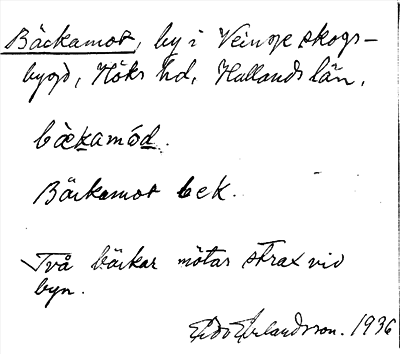 Bäckamot, by i Veinge skogs-
bygd, Höks hd, Hallands län.
bækamód.
Bäckamot bek.
Två bäckar mötas strax vid
byn.
Erlandsson. 1936